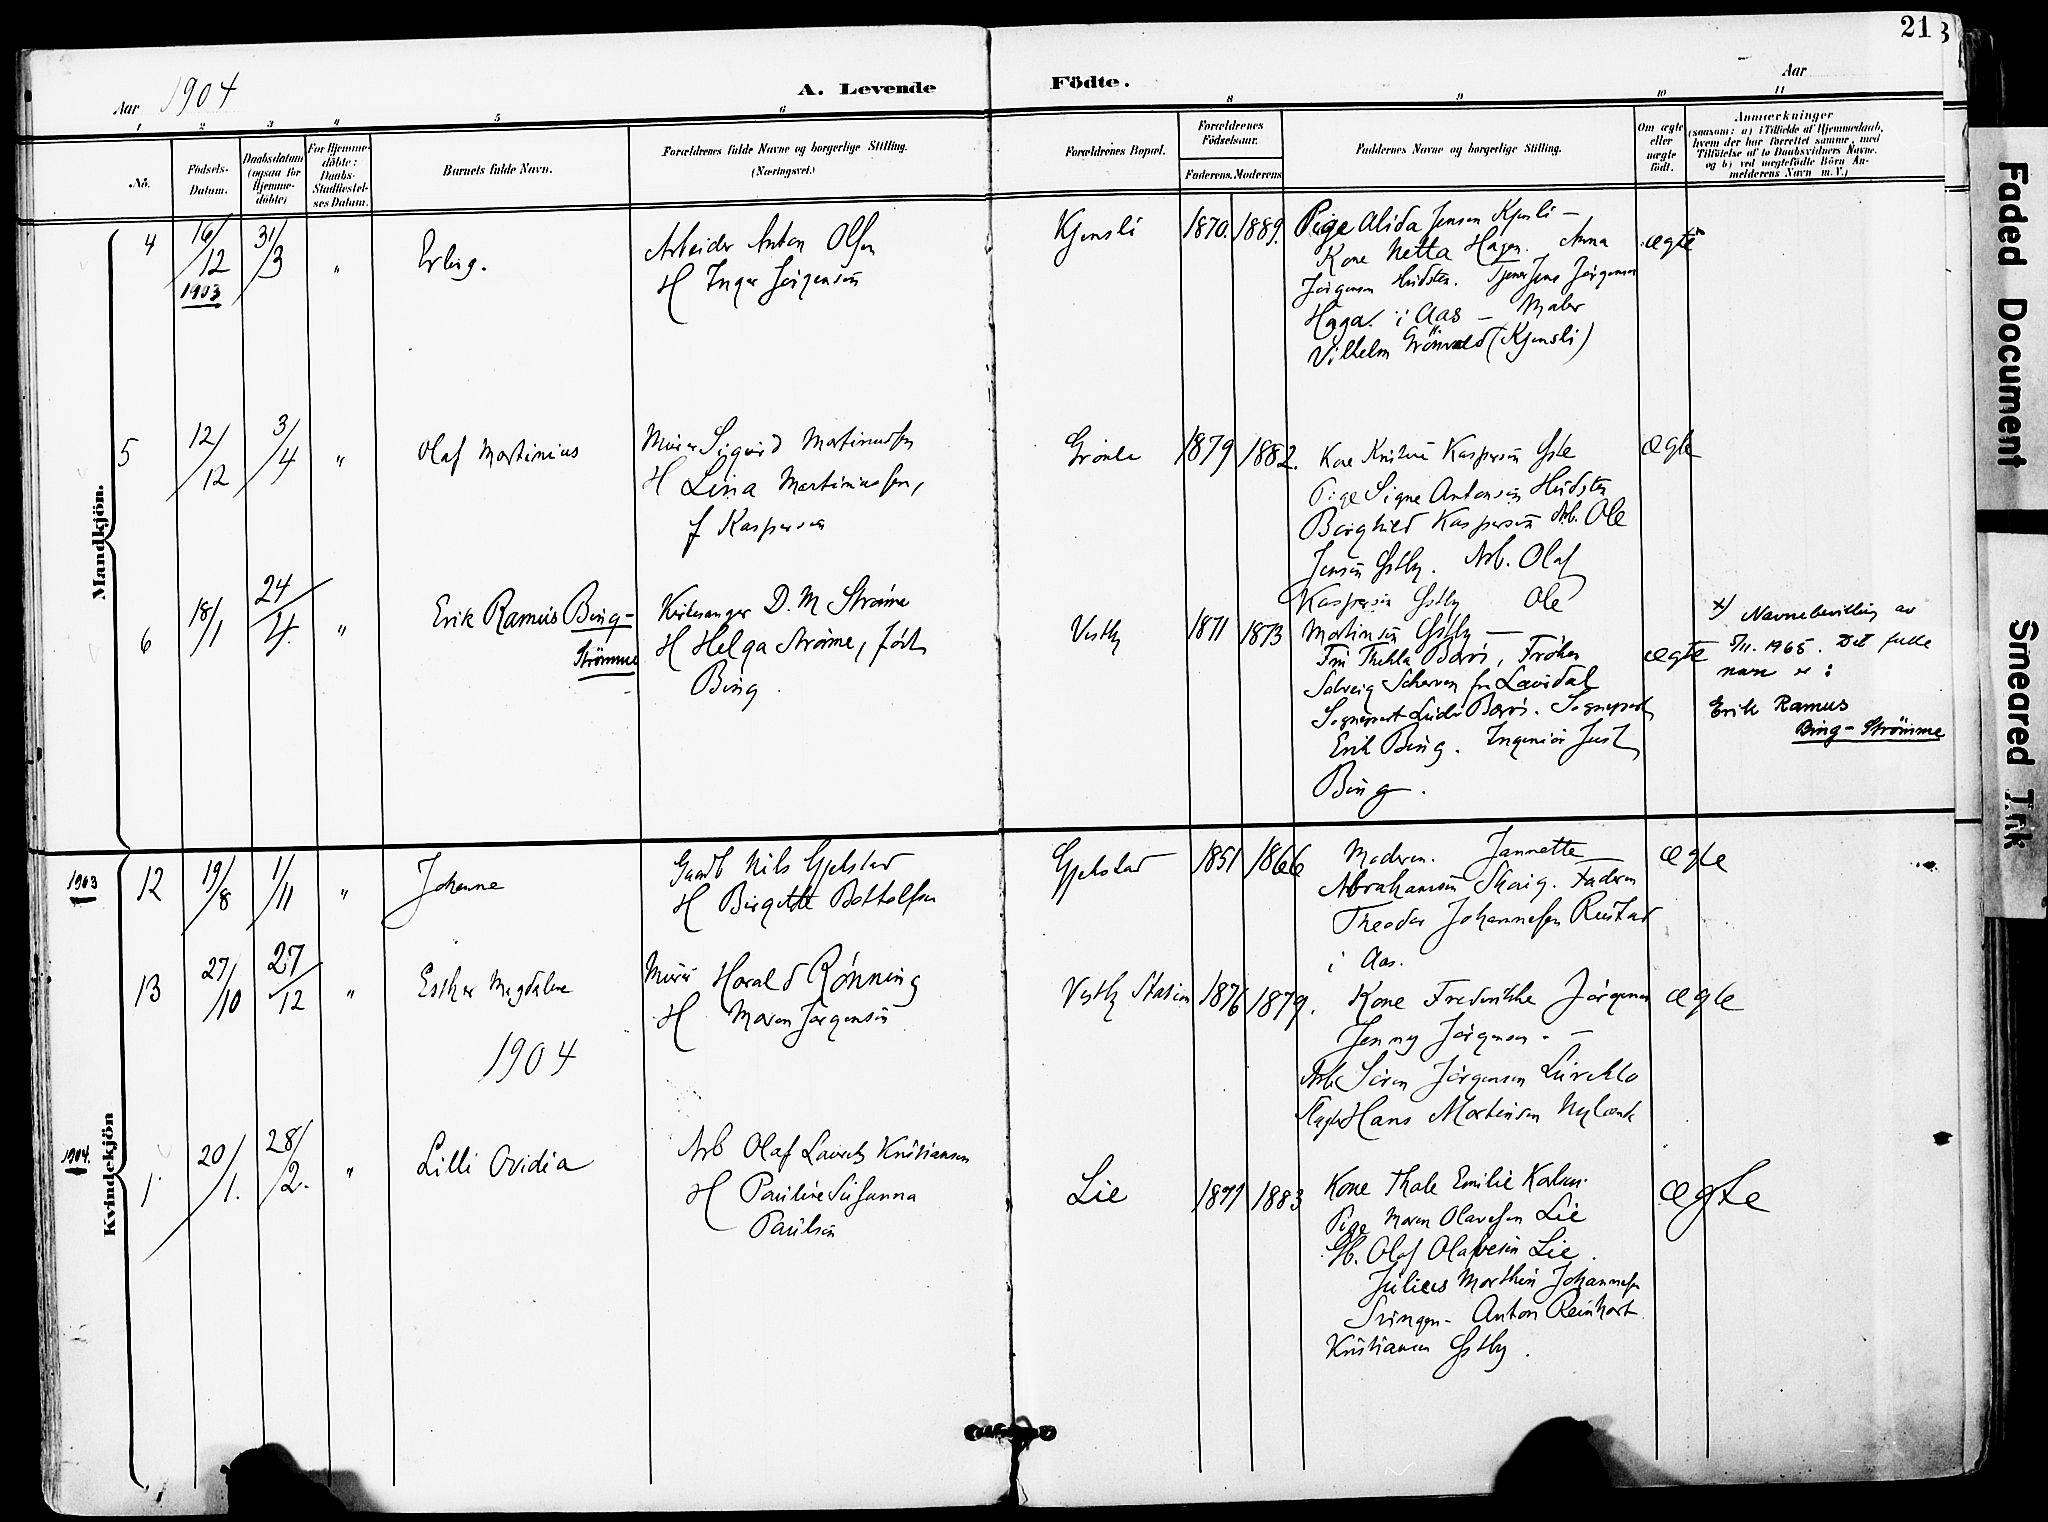 21
Aar 1904
A. Levende Födte.
Aar
1 2 3 4 5 6 8 9 10 11
No.
Födsels-
Datum.
Daabsdatum
(ogsaa for
Hjemme-
döbte)
For Hjemme-
döbte:
Daabs-
Stadfæstel-
ses Datum.
Barnets fulde Navn.
Forældrenes fulde Navne og borgerlige Stilling.
(Næringsvei.)
Forældrenes Bopæl.
Forældrenes
Födselsaar.
Faderens. Moderens
Faddernes Navne og borgerlige Stilling.
Om ægte
eller
uægte
födt.
Anmærkninger
(saasom: a) i Tilfælde af Hjemmedaab,
hvem der har forrettet samme, med
Tilföielse af to Daabsvidners Navne.
og b) ved uægtefödte Börn An-
melderens Navn m. V.)
Mandkjön.
4
16/12
1903
31/3
"
Erling.
Arbeider Anton Olsen
H Inger Jørgensen
Kjensli
1870. 1889.
Pige Alida Jensen Kjensli —
Kone Netta Hagen. Anna
Jørgensen Hudsten. Tjener Jens Jørgensen
Haga i Aas — Maler
Vilhelm Grönvold (Kjensli)
ægte
5
12/12
3/4
"
Olaf Martinius
Murer Sigurd Martinussen
H Lina Martiniussen,
f Kaspersen
Grönli
1879 1882.
Kone Kristine Kaspersen
Pige Signe Antonsen Hudsten
Borghild Kaspersen Arb. Ole
Jensen Østby. Arb. Olaf
Kaspersen Østby Ole
Martinsen Østby —
ægte
6
18/1
24/4.
"
Erik Ramus Bing-
Strømme
Kirkesanger D. M Strömme
H Helga Strömme, født
Bing.
Vestby
1871 1873
Fru Thekla Barös, Fröken
Solveig Scharven fra Lavidal
Sogneprest Barös. Sogneprest
Erik Bing. Ingeniör Just
Bing.
ægte
x) Navnebevilling av
5/11. 1965. Det fulle
navn er:
Erik Ramus
Bing-Strömme
Kvindekjön
1903
12
19/8
1/11
"
Johanne
Gaardb Nils Gjelstad
H Birgitte Bottolfsen
Gjelstad
1851 1866
Moderen. Jannette
Abrahamsen Skaug. Faderen
Theodor Johannesen Rustad
i Aas.
ægte
13
27/10
27/12
"
Esther Magdalene
Murer Harald Rønning
H Maren Jørgensen
Vestby Station
1876 1879.
Kone Frederikke Jørgensen
Jenny Jørgensen. —
Arb. Sören Jørgensen
Hans Martinsen
ægte
1904
1904.
1
20/1.
28/2.
"
Lilli Ovidia
Arb Olaf Laurits Kristiansen
H Pauline Susanna
Paulsen
Lie
1877 1883
Kone Thale Emilie Karlsen.
Pige Maren Olavesen Lie
Gb. Olaf Olavesen Lie.
Julius Marthin Johannesen
Anton Reinhart
Kristiansen Østby.
ægte
Faded Document
Smeared Trk